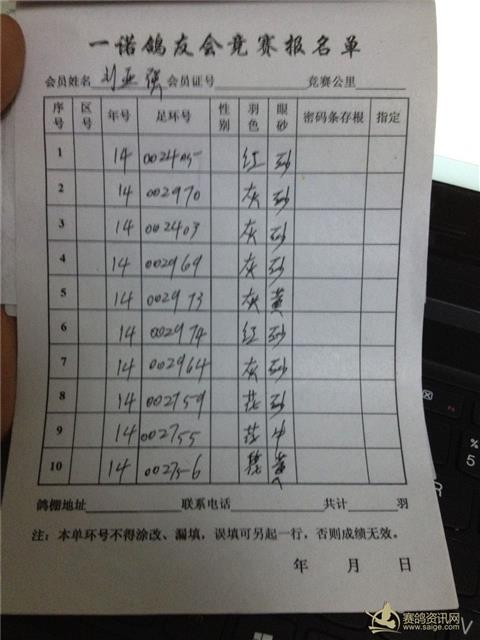 一诺鸽友会竞赛报名单
会员姓名 刘亚强 会员证号 竞赛公里
序号 区号 年号 足环号 性别 羽色 眼砂 密码条存根 指定
1 14 002405 红 砂
2 14 002970 灰 砂
3 14 002403 灰 砂
4 14 002969 灰 砂
5 14 002973 灰 黄
6 14 002974 红 砂
7 14 002964 灰 砂
8 14 002759 花 砂
9 14 002755 花 牛
10 14 002756 黄
鸽棚地址 联系电话 共计 羽
注：本单环号不得涂改、漏填，误填可另起一行，否则成绩无效。
年 月 日
赛鸽资讯网
www.saige.com